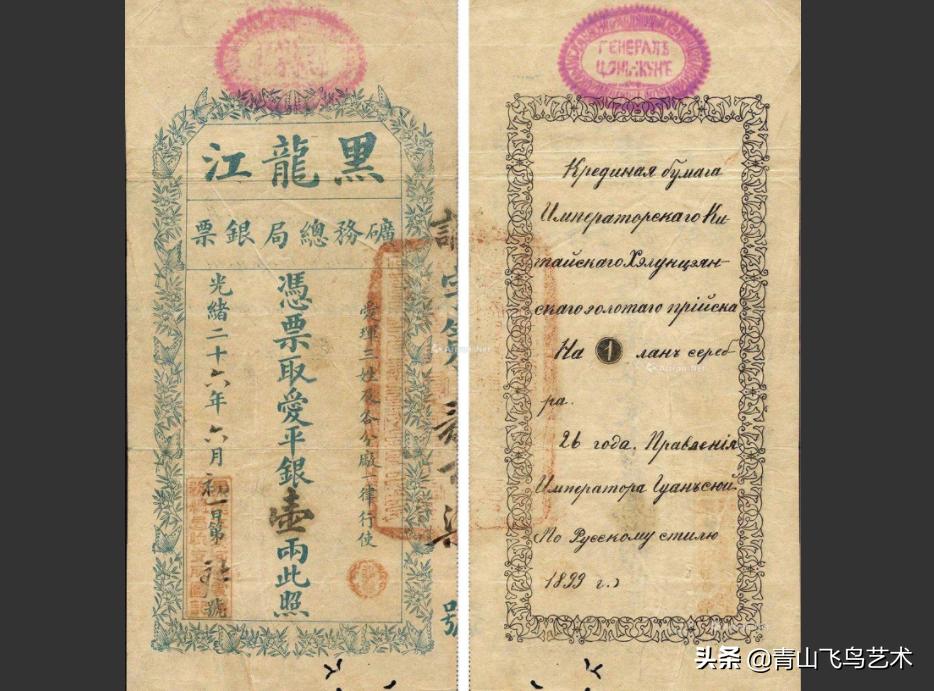 黑龍江
礦務總局銀票
愛琿三姓及各分廠一律行使
憑票取愛平銀壹兩此照
光緒二十六年六月初一日第
號
號
ГЕНЕРАЛЪ
ЦЗНЬ-ЖУНЪ
Крединая бумага
Императорскаго Ки-
тайскаго Хэлунцзян-
скаго золотаго прійска
На 1 ланъ сереб-
ра.
26 года. Правленія
Императора Гуанъсюй.
По Русскому стилю
1899 г.
Artron.Net
Artron.Net
头条 @青山飞鸟艺术